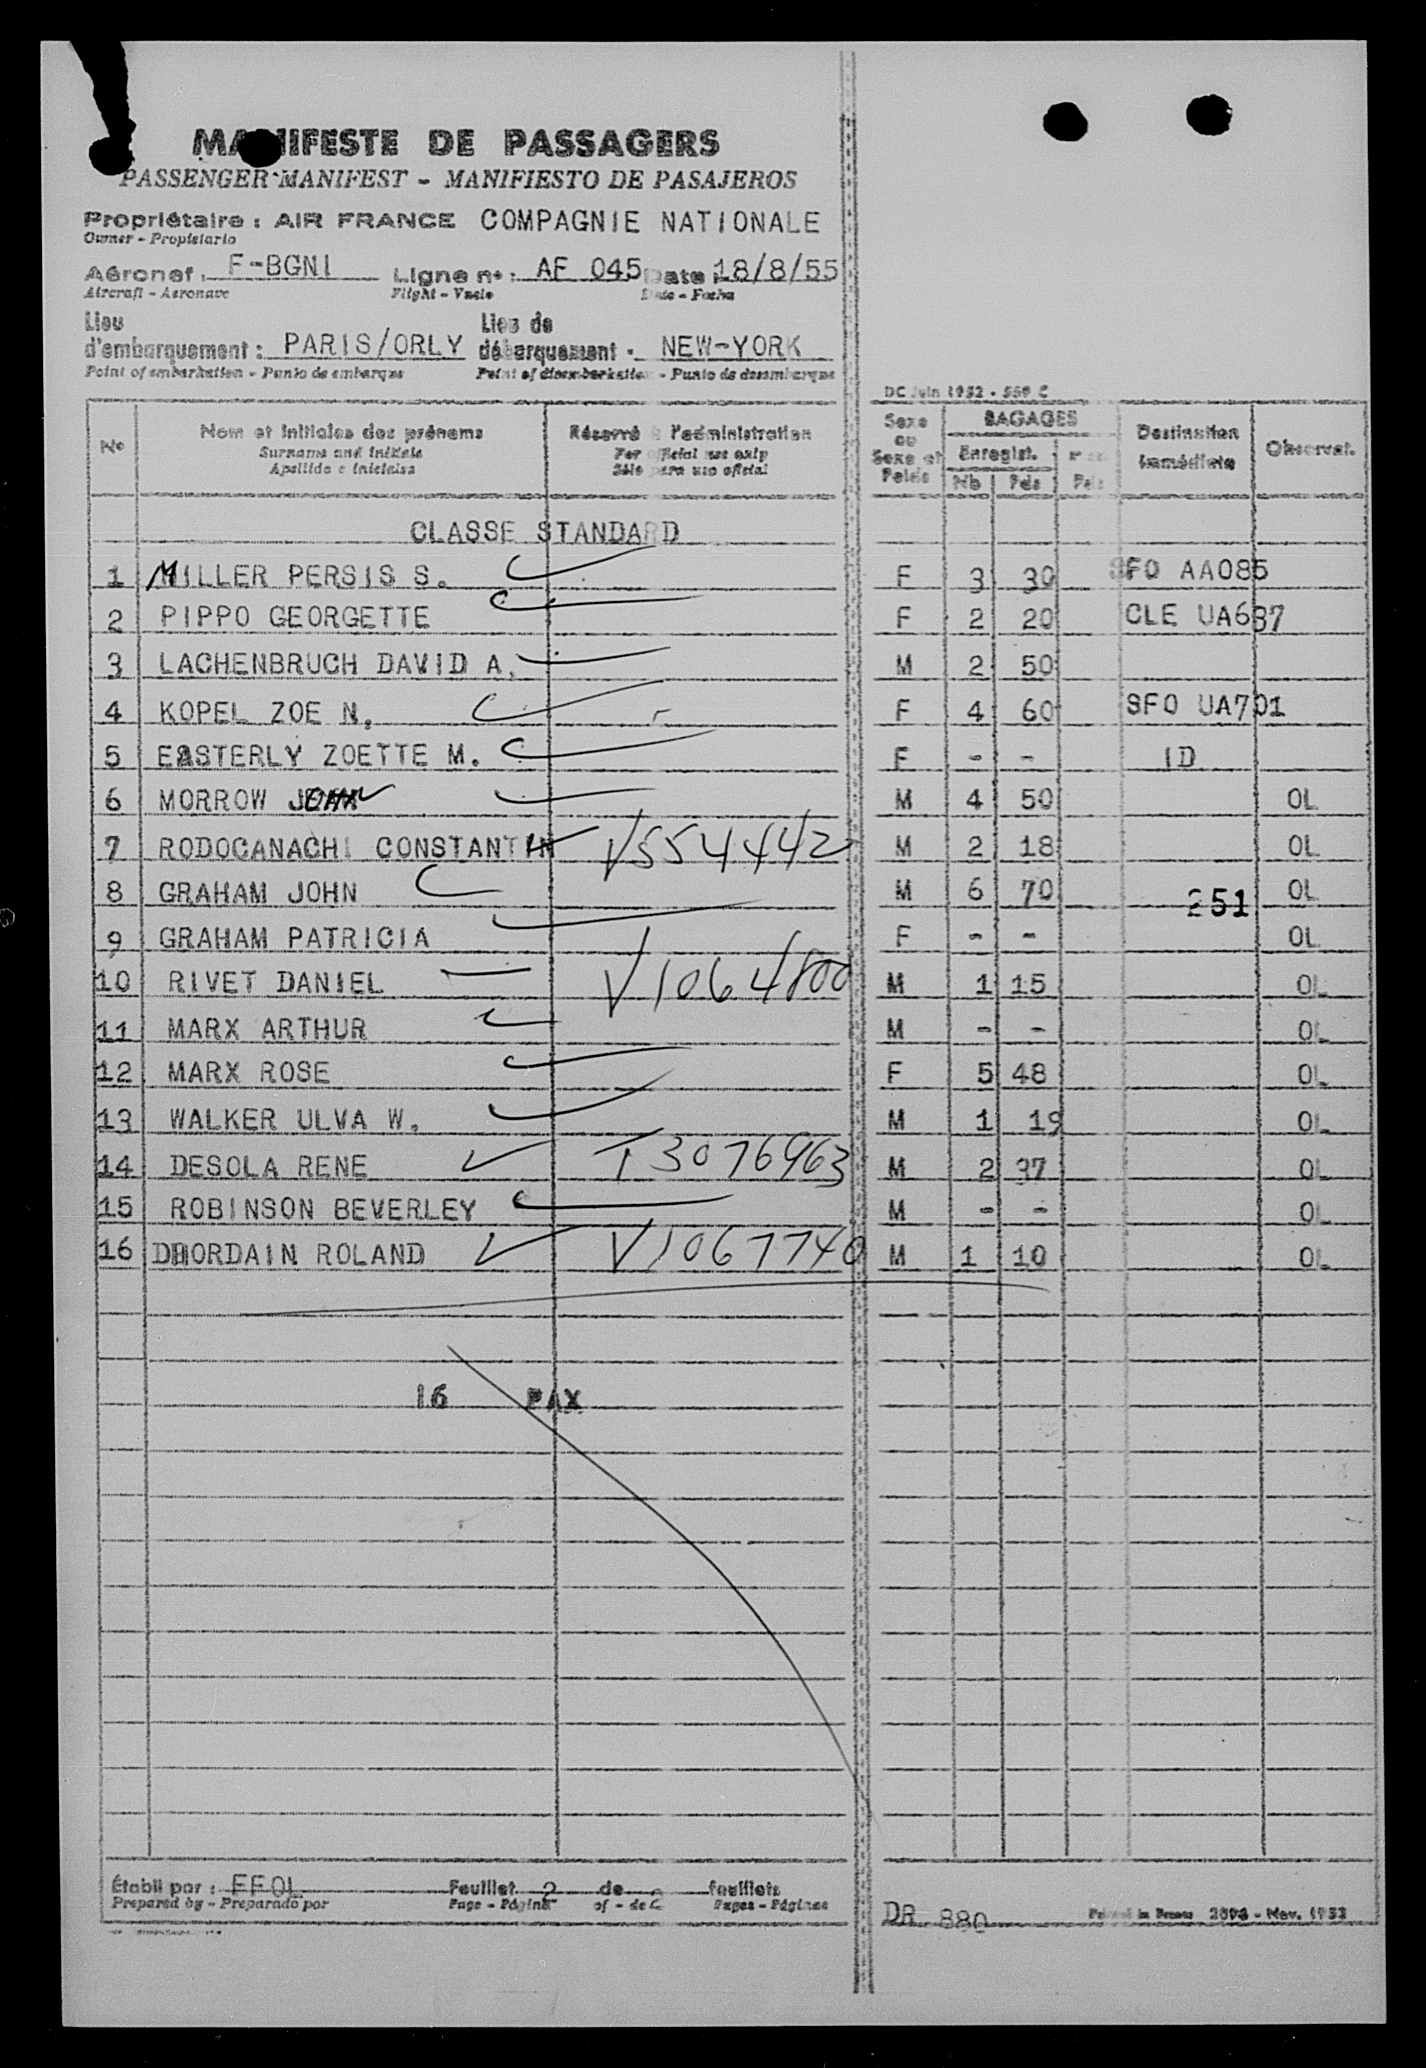 MANIFESTE DE PASSAGERS
PASSENGER MANIFEST - MANIFIESTO DE PASAJEROS
Propriétaire : AIR FRANCE COMPAGNIE NATIONALE
Owner - Propietario
Aéronef : F-BGNI Ligne n° : AF 045 Date : 18/8/55
Aircraft - Aeronave Flight - Vuelo Date - Fecha
Lieu d'embarquement : PARIS/ORLY Lieu de débarquement : NEW-YORK
Point of embarkation - Punto de embarque Point of disembarkation - Punto de desembarque
DC Juin 1952 - 559 C
No Nom et initiales des prénoms Réservé à l'administration Sexe ou Sexe et Poids BAGAGES Destination immédiate Observat.
Surname and initials For official use only Enregist.
Apellido e iniciales Sólo para uso oficial Nb Pds Pds
CLASSE STANDARD
1 MILLER PERSIS S. F 3 30 SFO AA085
2 PIPPO GEORGETTE F 2 20 CLE UA637
3 LACHENBRUCH DAVID A. M 2 50
4 KOPEL ZOE N. F 4 60 SFO UA701
5 EASTERLY ZOETTE M. F - - ID
6 MORROW JOHN M 4 50 OL
7 RODOCANACHI CONSTANTIN V554442 M 2 18 OL
8 GRAHAM JOHN M 6 70 251 OL
9 GRAHAM PATRICIA F - - OL
10 RIVET DANIEL V1064800 M 1 15 OL
11 MARX ARTHUR M - - OL
12 MARX ROSE F 5 48 OL
13 WALKER ULVA W. M 1 19 OL
14 DESOLA RENE T3076963 M 2 37 OL
15 ROBINSON BEVERLEY M - - OL
16 DHORDAIN ROLAND V1067740 M 1 10 OL
16 PAX
Établi par : FFOL Feuillet 2 de 2 feuillets
Prepared by - Preparado por Page - Página of - de Pages - Páginas
DR 880 Printed in France 2094 - Nov. 1953